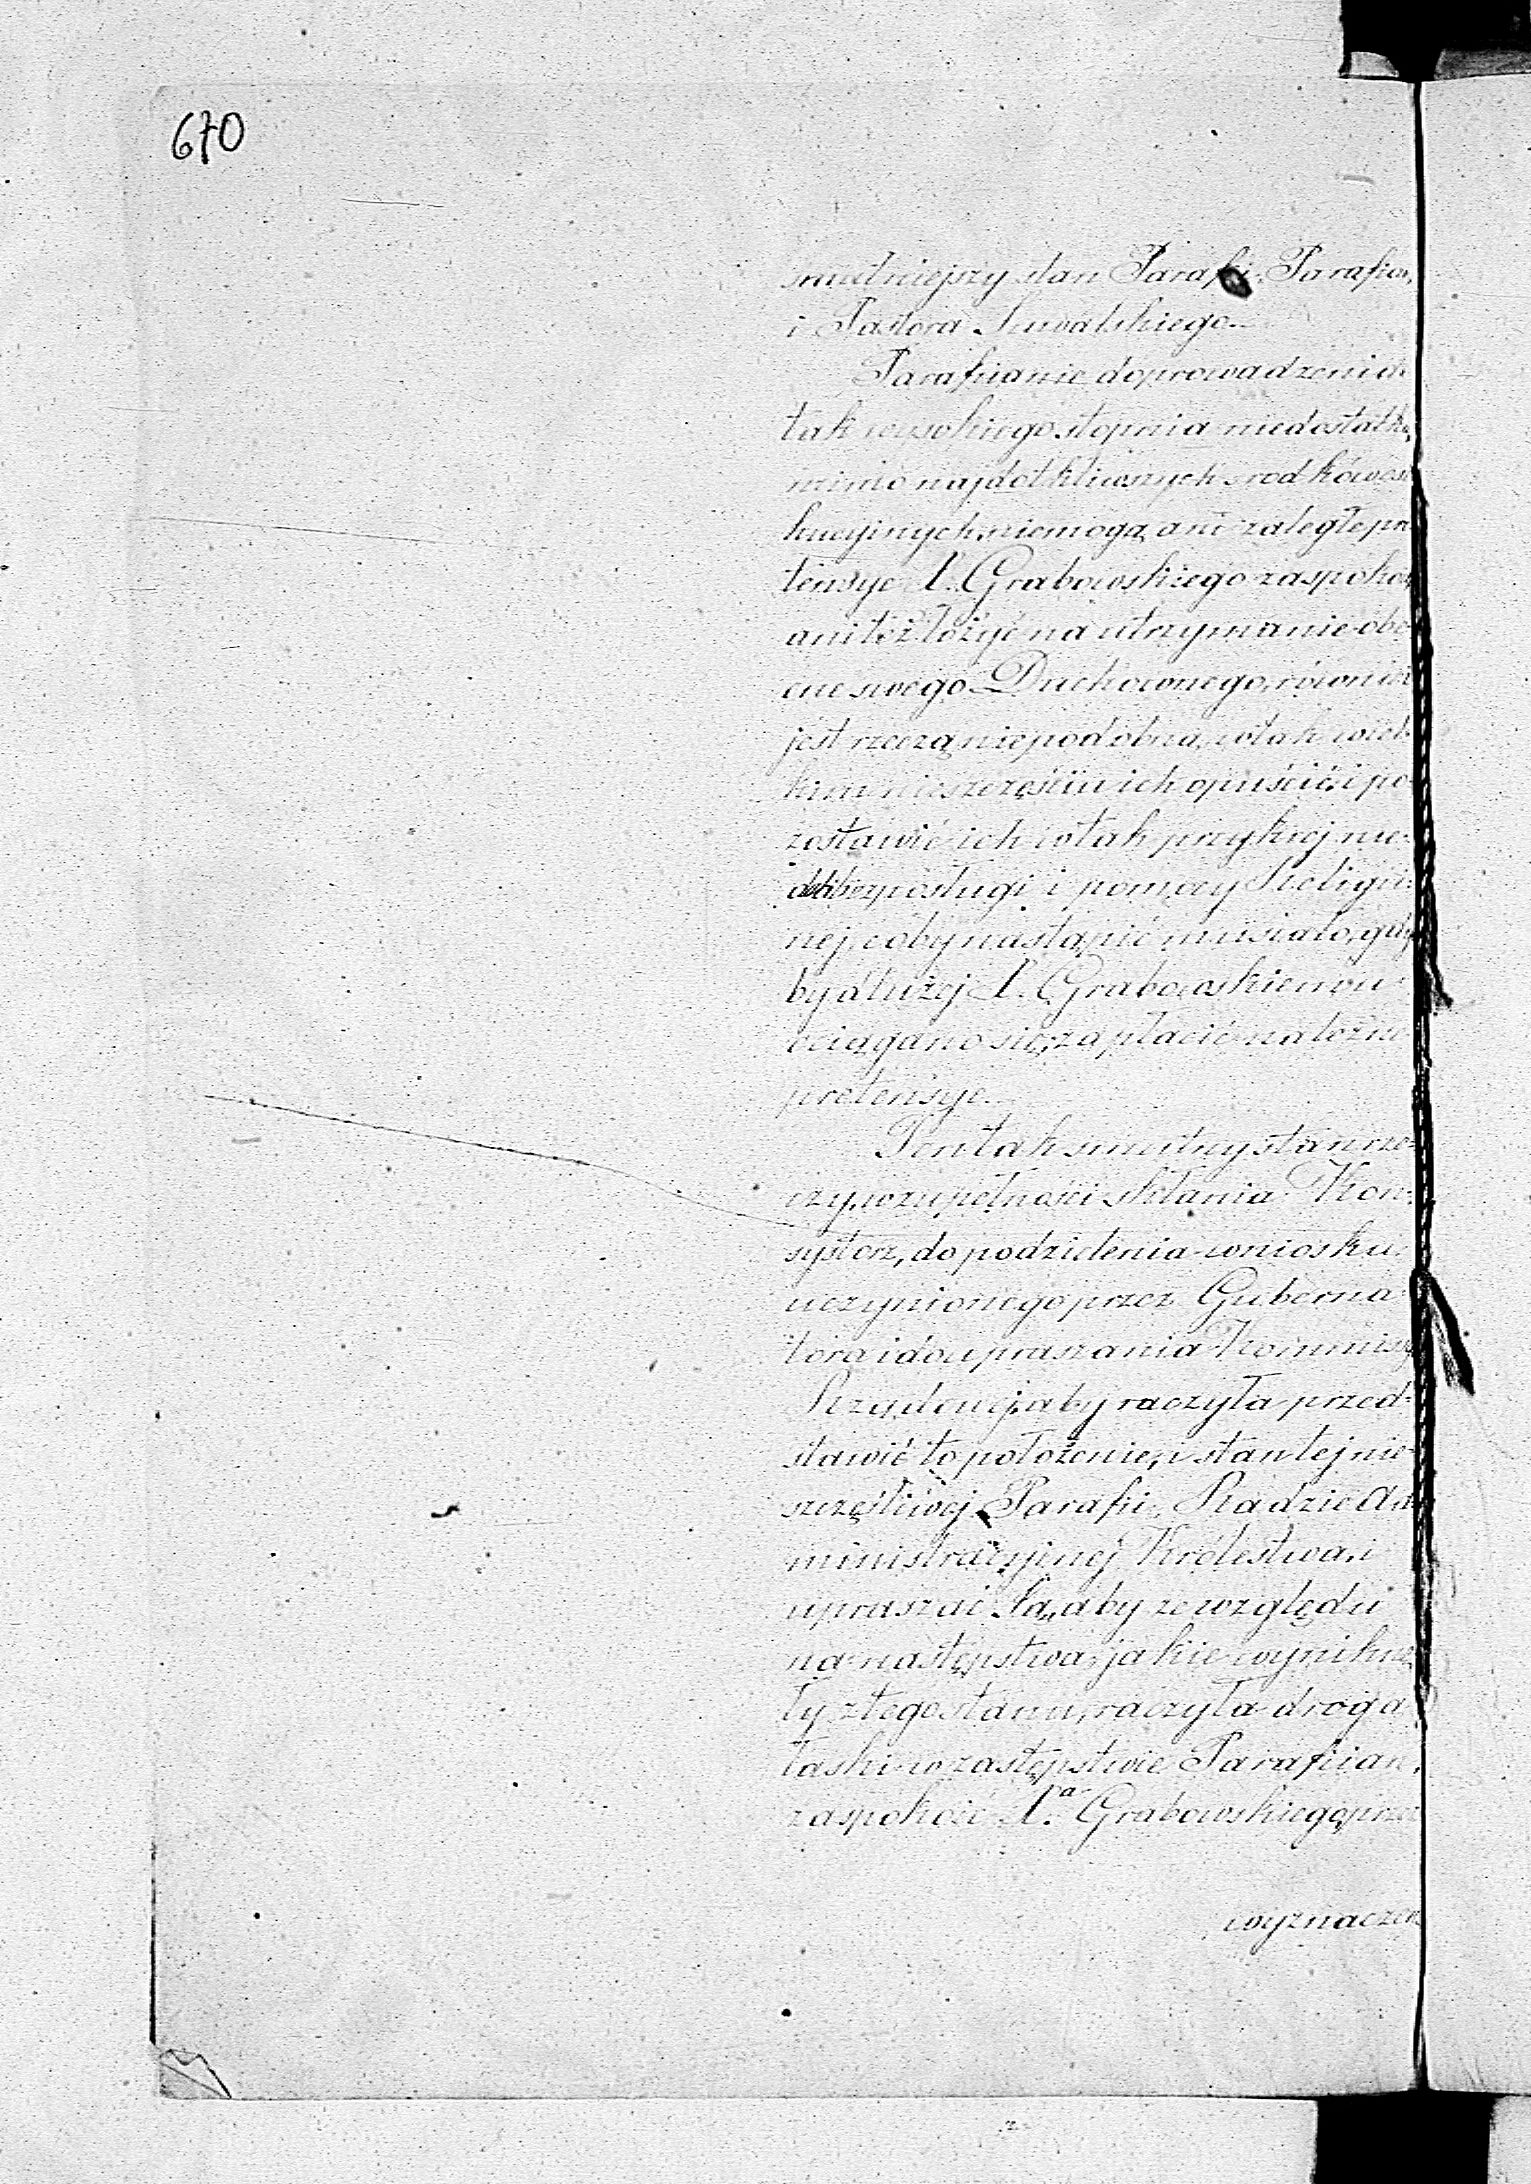 670
smutniejszy stan Parafii, Parafian,
i Pastora Suwalskiego.
Parafianie doprowadzeni do
tak wysokiego stopnia niedostatku,
mimo najdotkliwszych srodków exe
kucyjnych, niemogą ani zaległe pre
tensye P. Grabowskiego zaspokoić
ani też łożyć na utrzymanie obe
cne swego Duchownego, również
jest rzeczą niepodobną, w tak wiel
kim nieszczęściu ich opuścić i po
zostawić ich w tak przykrej nie
doli bez posługi i pomocy Religij
nej, coby nastąpić musiało, gdy
by dłużej P. Grabowskiemu
ociągano się zapłacić należne
pretensye.
Ten tak smutny stan rze-
czy, w zupełności skłania Kon-
systorz, do podzielenia wniosku
uczynionego przez Guberna-
tora i do upraszania Kommissyi
Rządowej, aby raczyła przed-
stawić to położenie, i stan tej nie-
szczęśliwej Parafii, Radzie Ad
ministracyjnej Królestwa, i
upraszać Ją, aby ze względu
na następstwa, jakie wynikne
ły z tego stanu, raczyła drogą
łaski w zastępstwie Parafian,
zaspokoić P.ª Grabowskiego, prze
wyznaczen